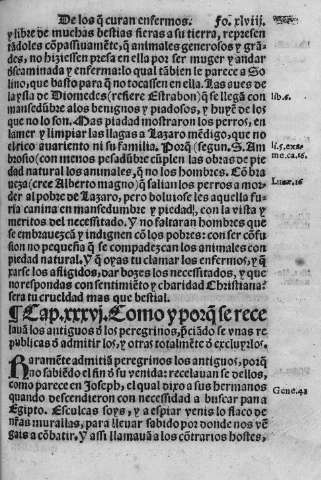 De los q̃ curan enfermos. Fo. xlviij.
y libre de muchas bestias fieras a su tierra, represen
tãdoles cõpassiuamẽte, q̃ animales generosos y grã-
des, no hiziessen presa en ella por ser muger y andar
descaminada y enferma: lo qual tãbien le parece a So
lino, que basto para q̃ no tocassen en ella. Las aues de
la ysla de Diomedes (refiere Estrabon) q̃ se llegã con
mansedũbre a los benignos y piadosos, y huyẽ de los
que no lo son. Mas piadad mostraron los perros, en
lamer y limpiar las llagas a Lazaro mẽdigo, que no
el rico auariento ni su familia. Porq̃ (segun. S. Am
brosio) con menos pesadũbre cũplen las obras de pie
dad natural los animales, q̃ no los hombres. Cõ bra
ueza (cree Alberto magno) q̃ salian los perros a mor-
der al pobre de Lazaro, pero boluiose les aquella fu-
ria canina en mansedumbre y piedad, con la vista y
meritos del necessitado. Y no faltaran hombres que
se embrauezcã y indignen cõ los pobres: con ser cõfu
sion no pequeña q̃ se compadezcan los animales con
piedad natural. Y q̃ oyas tu clamar los enfermos, y q̃
xarse los afligidos, dar bozes los necessitados, y que
no respondas con sentimiẽto y charidad Christiana:
sera tu crueldad mas que bestial.
¶ Cap. xxxvj. Como y porq̃ se rece
lauã los antiguos õ los peregrinos, p̃ciãdo se vnas re
publicas õ admitir los, y otras totalmẽte õ excluyr los.
Raramẽte admitiã peregrinos los antiguos, porq̃
no sabiẽdo el fin õ su venida: recelauan se dellos,
como parece en Joseph, el qual dixo a sus hermanos
quando descendieron con necessidad a buscar pan a
Egipto. Esculcas soys, y a espiar venis lo flaco de
nr̃as murallas, para lleuar sabido por donde nos vẽ
gais a cõbatir. Y assi llamauã a los cõtrarios hostes,
lib. 6.
li. 5. exa-
me. ca. 16.
Lucæ. 16
Gene. 42